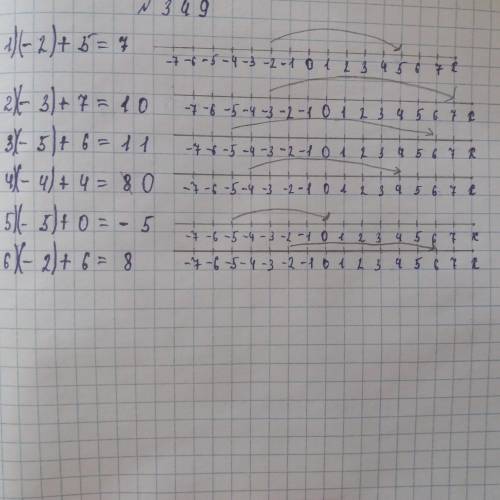 № 349
1) (- 2) + 5 = 7
-7 -6 -5 -4 -3 -2 -1 0 1 2 3 4 5 6 7 x
2) (- 3) + 7 = 10
-7 -6 -5 -4 -3 -2 -1 0 1 2 3 4 5 6 7 x
3) (- 5) + 6 = 11
-7 -6 -5 -4 -3 -2 -1 0 1 2 3 4 5 6 7 x
4) (- 4) + 4 = 80
-7 -6 -5 -4 -3 -2 -1 0 1 2 3 4 5 6 7 x
5) (- 5) + 0 = - 5
-7 -6 -5 -4 -3 -2 -1 0 1 2 3 4 5 6 7 x
6) (- 2) + 6 = 8
-7 -6 -5 -4 -3 -2 -1 0 1 2 3 4 5 6 7 x